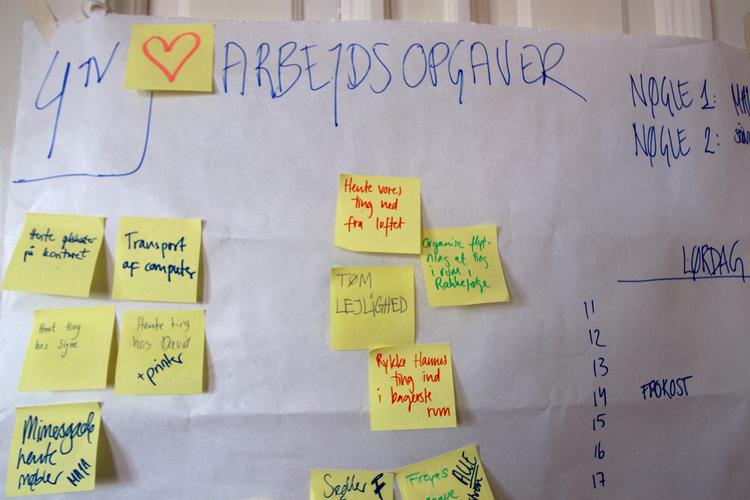 ARBEJDSOPGAVER
NØGLE 1:
NØGLE 2:
Hente vores
ting ned
fra loftet
Hente
på kontoret
Transport
af computer
Organise flyt-
ning af ting
i rum i
Rækkefølge
TØM
LEJLIGHED
LØRDAG
Hent ting
hos Signe
Hente ting
hos David
+ printer
Rykke Hannes
ting ind
i bagerste
rum
11
12
13
14 FROKOST
15
16
17
Mimersgade
hente
møbler MAJA
Sedler F
Freyas ALLE